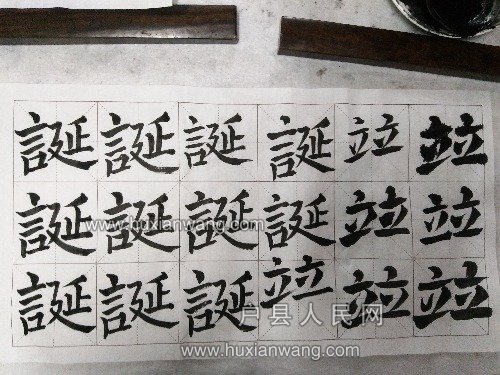 誕誕誕誕竝竝
誕誕誕誕竝竝
www.huxianwang.com
誕誕誕竝竝竝
户县人民网
www.huxianwang.com